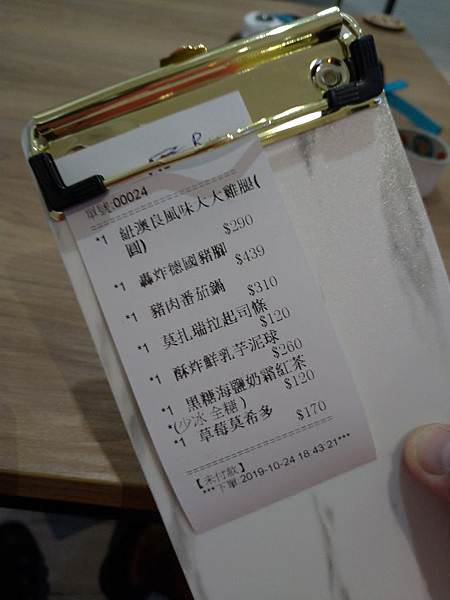 單號:00024
*1 紐澳良風味大大雞腿(
圓)
$290
*1 轟炸德國豬腳 $439
*1 豬肉番茄鍋 $310
*1 莫扎瑞拉起司條
$120
*1 酥炸鮮乳芋泥球
$260
*1 黑糖海鹽奶霜紅茶
*(少冰 全糖) $120
*1 草莓莫希多 $170
【未付款】
***下單:2019-10-24 18:43:21***